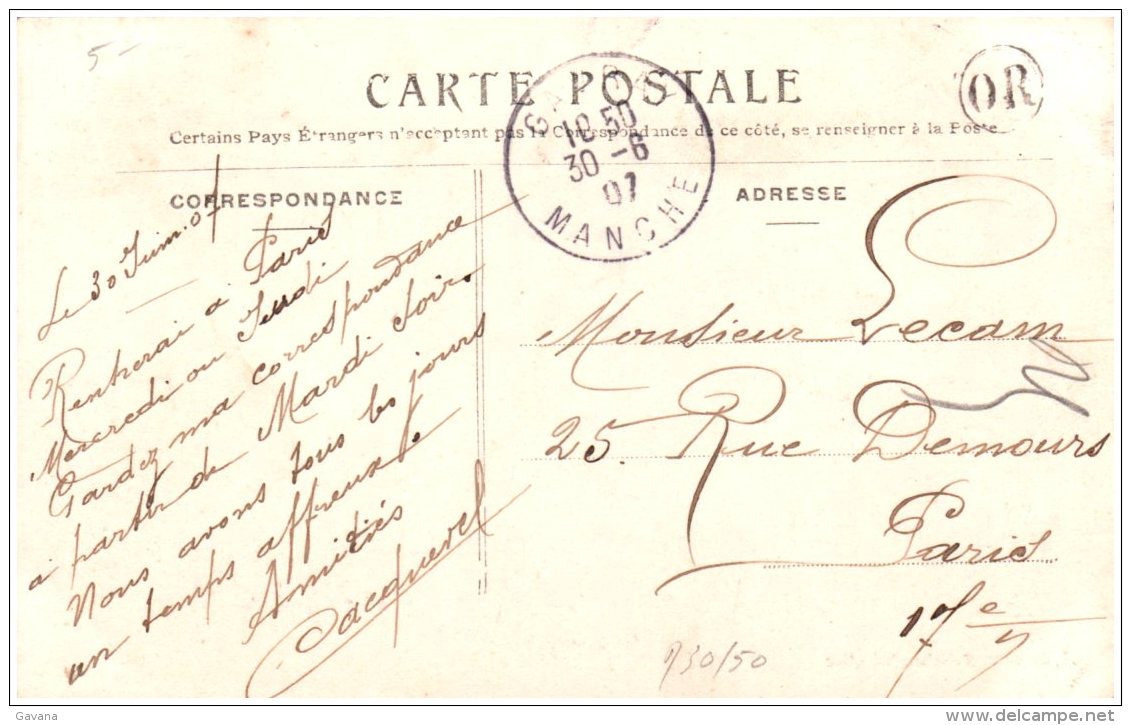 5-
CARTE POSTALE
OR
Certains Pays Étrangers n'acceptant pas la Correspondance de ce côté, se renseigner à la Poste
10 50
30 -6
07
MANCHE
CORRESPONDANCE
Le 30 Juin. 07
Rentrerai à Paris
Mercredi ou Jeudi
Gardez ma correspondance
à partir de Mardi soir.
Nous avons tous les jours
un temps affreux.
Amitiés
Jacquerel
ADRESSE
Monsieur Lecam
25. Rue Demours
Paris
17e
130/50
Gavana
www.delcampe.net